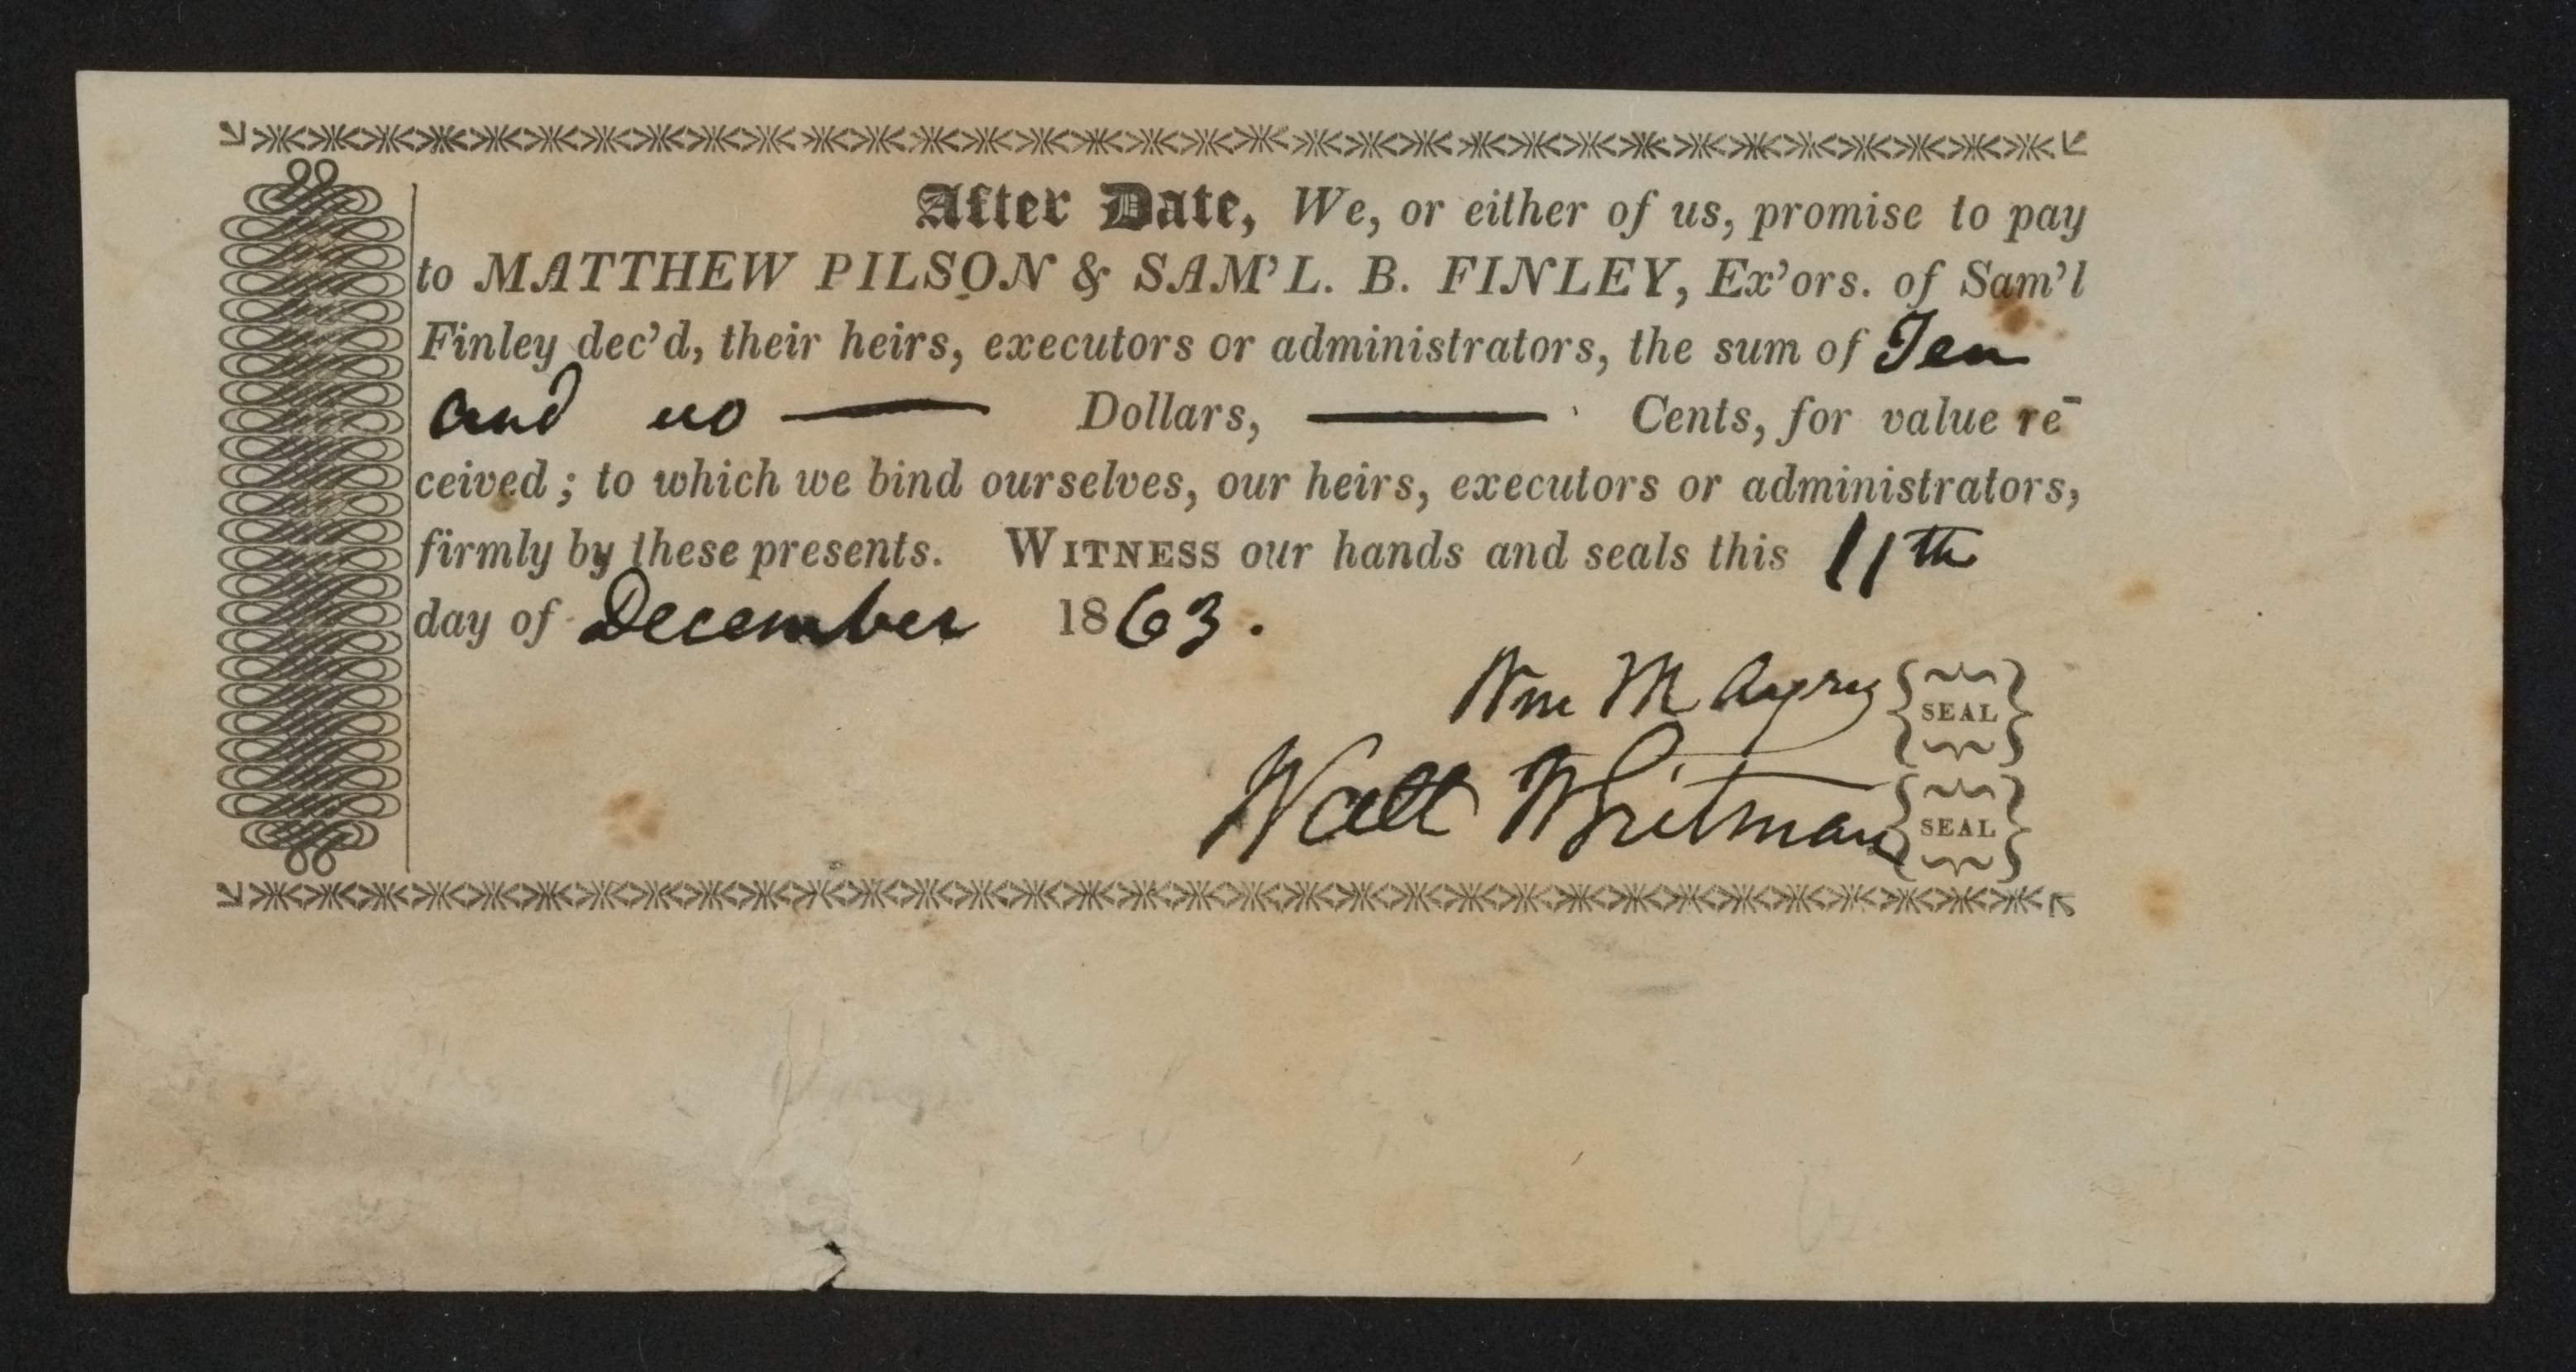 After Date, We, or either of us, promise to pay
to MATTHEW PILSON & SAM'L. B. FINLEY, Ex'ors. of Sam'l
Finley dec'd, their heirs, executors or administrators, the sum of Ten
and no — Dollars, — Cents, for value re-
ceived; to which we bind ourselves, our heirs, executors or administrators,
firmly by these presents. WITNESS our hands and seals this 11th
day of December 1863.
Wm M SEAL
Walt Whitman SEAL